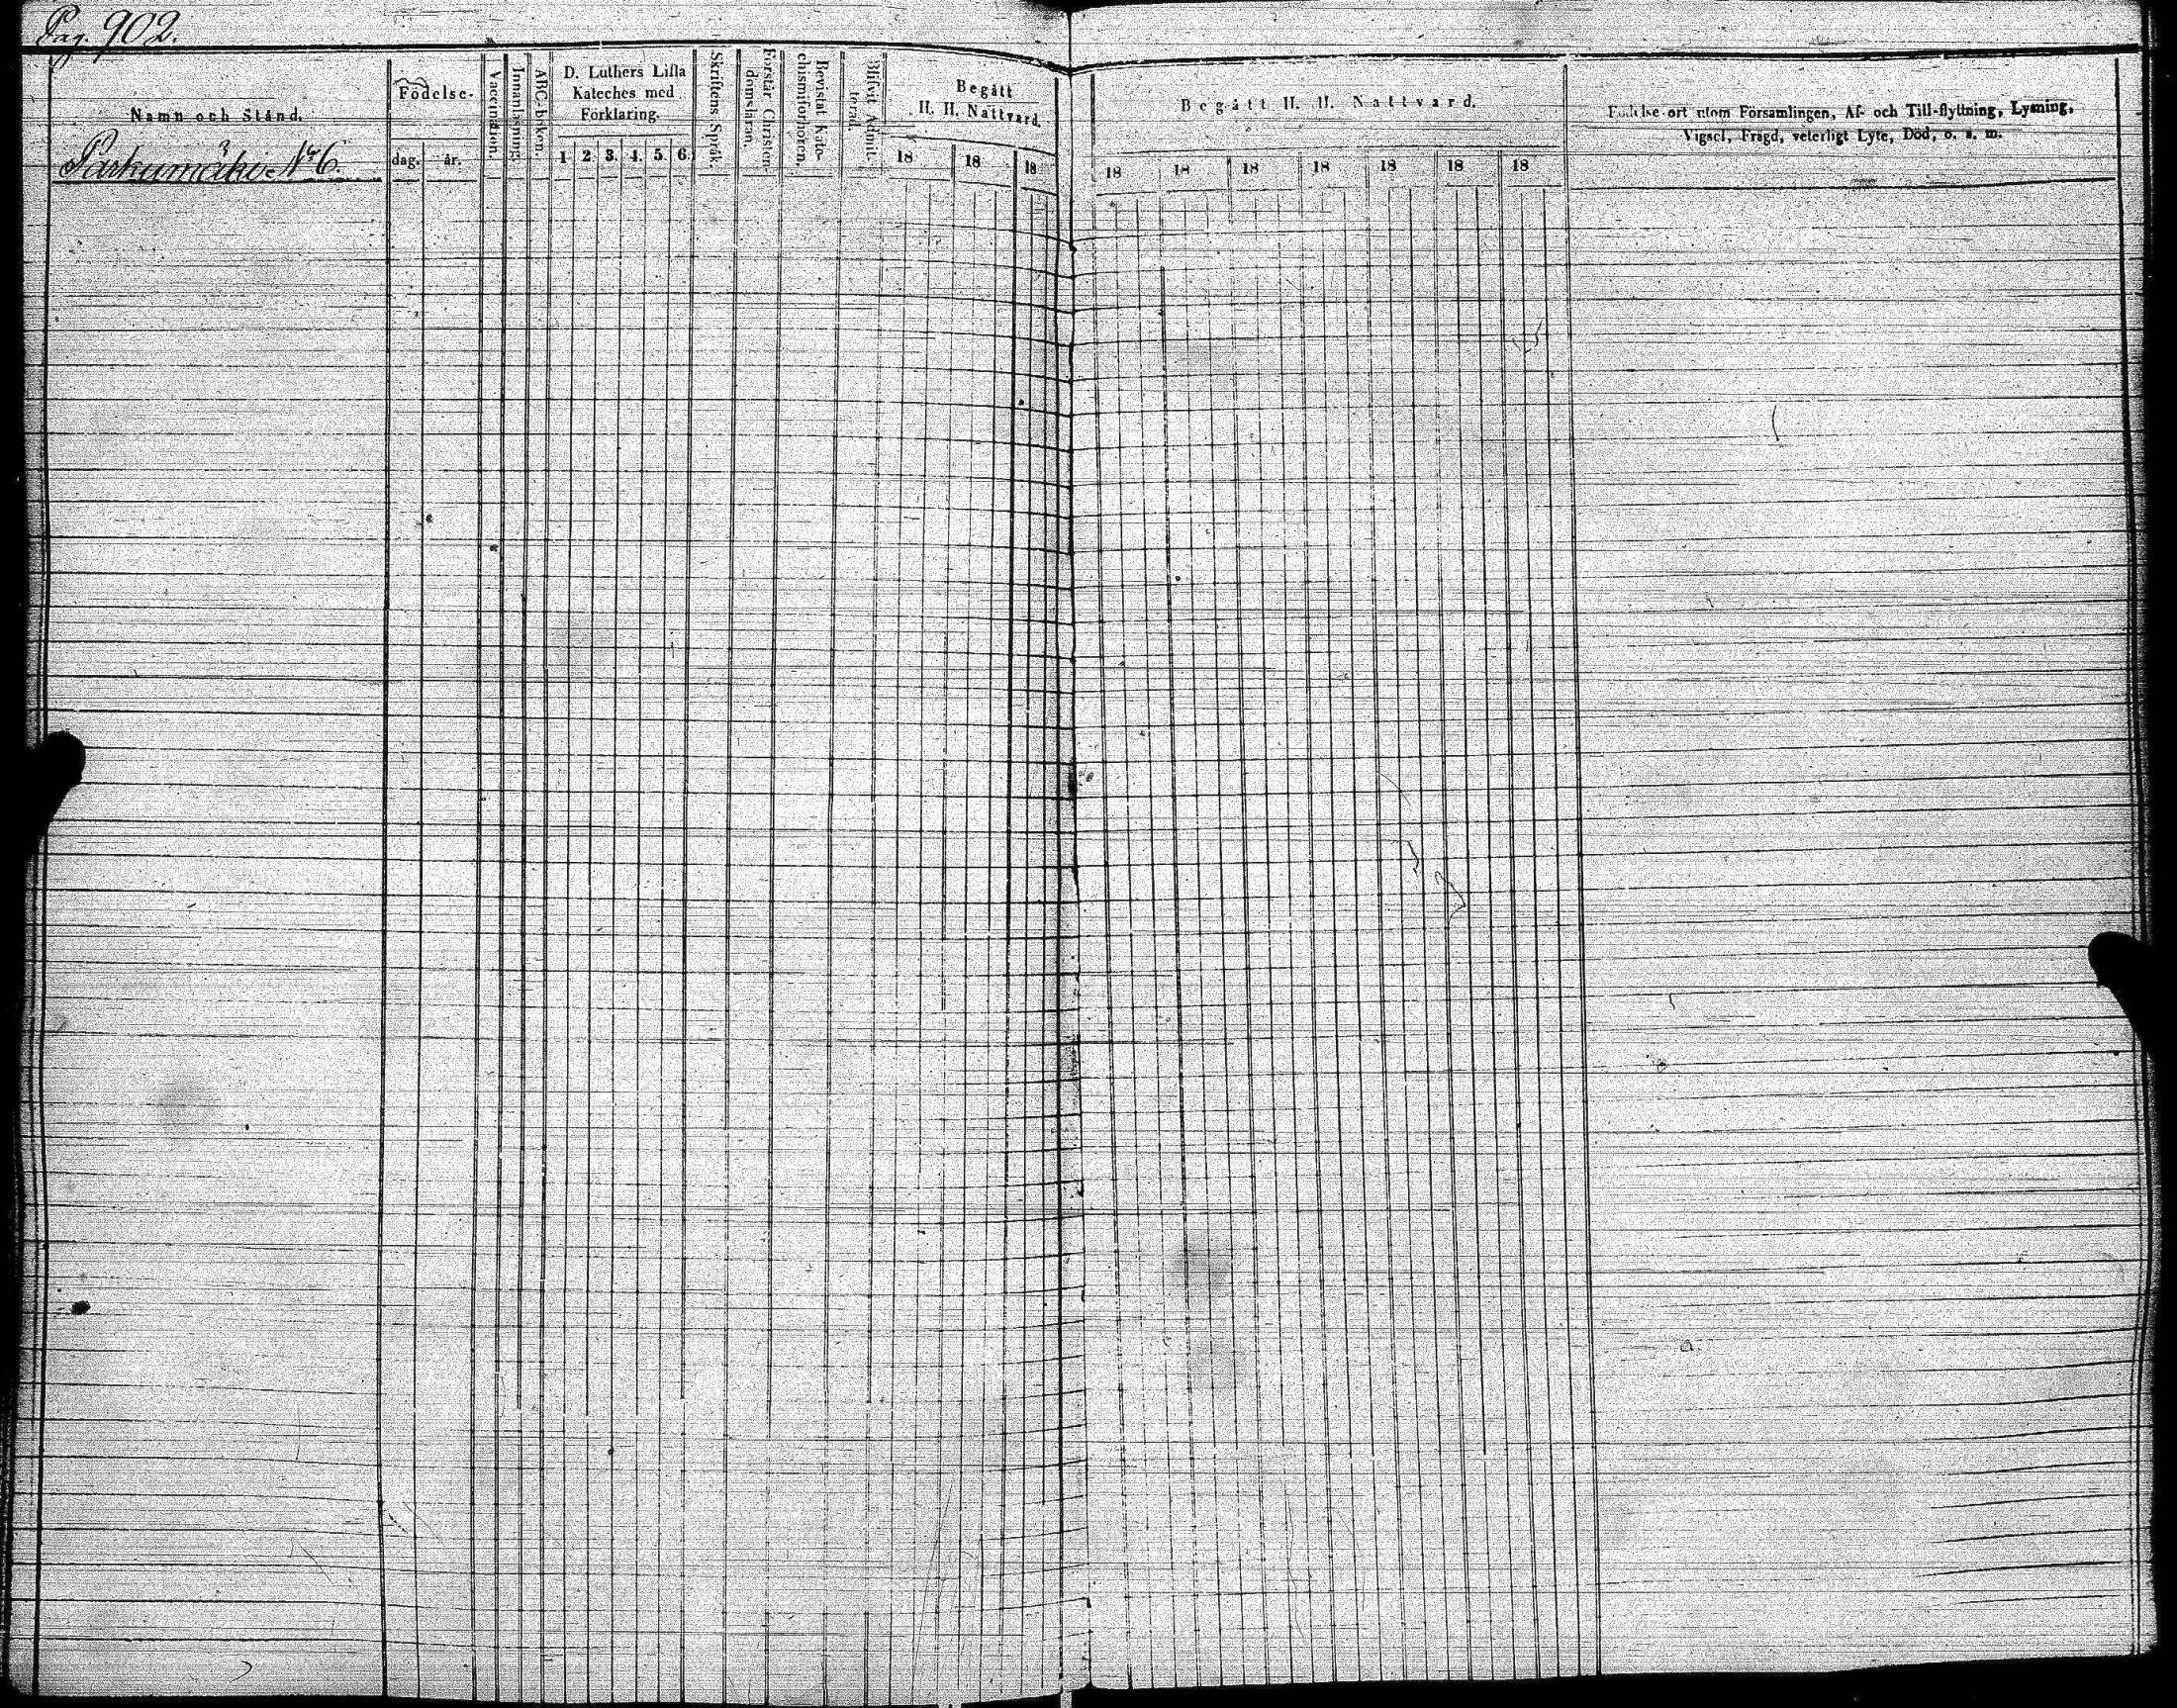 Pag. 902.
Namn och Stånd.
Parkumäki N:o 6.
Födelse-
dag. år.
Vaccination.
Innanläsning.
ABC-boken.
D. Luthers Lilla
Kateches med
Förklaring.
1 2. 3. 4. 5. 6.
Skriftens Språk.
Förstår Christen-
domsläran.
Bevistat Kate-
chismiförhören.
Blifvit Admit-
terad.
Begått
H. H. Nattvard.
18 18 18
Begått H. H. Nattvard.
18 18 18 18 18 18 18
Födelse-ort utom Församlingen, Af- och Till-flyttning, Lysning,
Vigsel, Frägd, veterligt Lyte, Död, o. s. m.